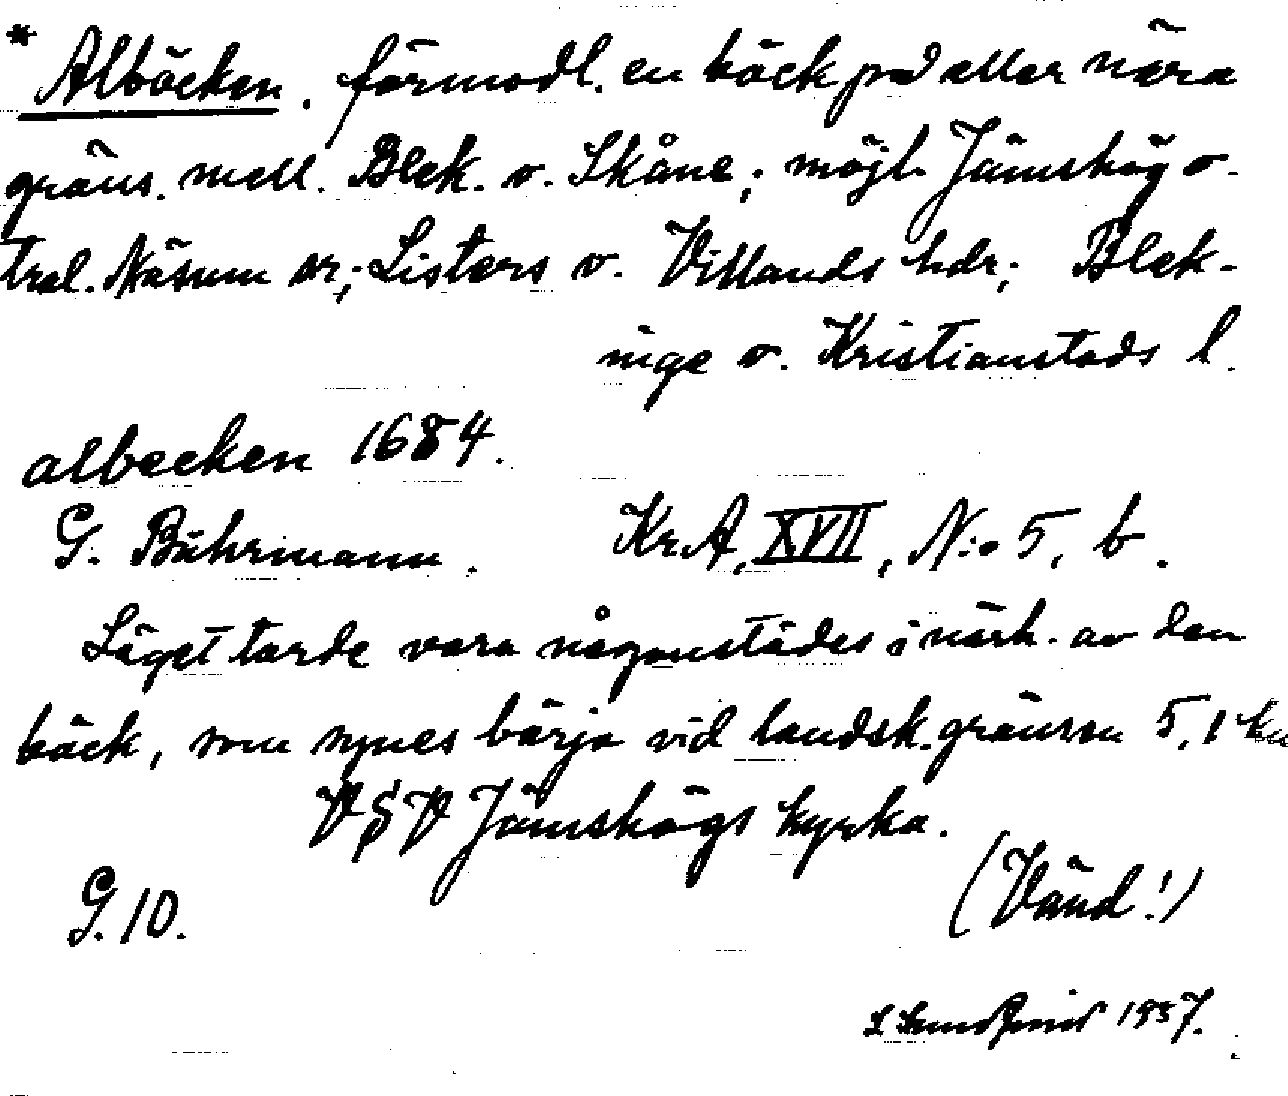 * Alböcken. förmodl. en bäck på eller nära
gräns. mell. Blek. o. Skåne; möjl. Jämshög o.
tral. Näsum sr; Listers o. Villands hdr; Blek-
inge o. Kristianstads l.
albecken 1684.
G. Buhrmann. KrA, XVII, N:o 5, b.
Läget torde vara någonstädes i närh. av den
bäck, som synes börja vid landsk.gränsen 5,1 km
V § V Jämshögs kyrka.
(Vänd!)
G. 10.
1937.